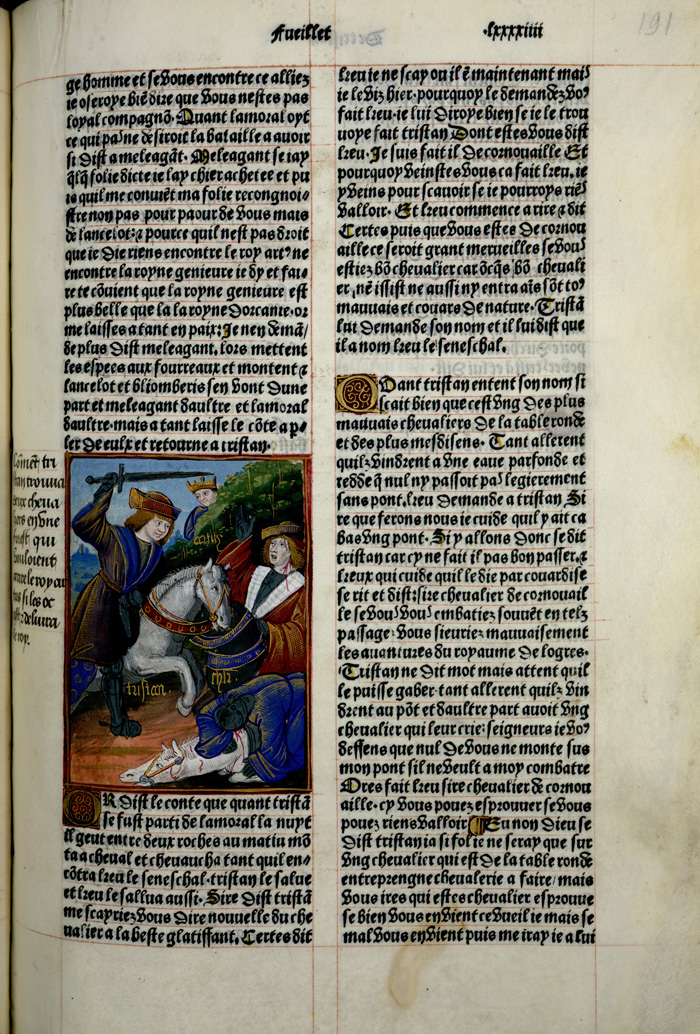 Fueillet
.lxxxxiiii
191
ge homme et se vous encontre ce alliez
ie oseroye biē dire que vous nestes pas
loyal compagnō. Quant lamoral oyt
ce qui pas ne desiroit la bataille a auoir
si dist a meleagāt. Meleagant se iay
folie dicte ie lay chier achetee et pu
is quil me conuiēt ma folie recongnoi
stre non pas pour paour de vous mais
de lancelot: et pource quil nest pas droit
que ie die riens encontre le roy art9 ne
encontre la royne genieure ie dy et fai
re te cōuient que la royne genieure est
plus belle que la la royne dorcanie. or
me laisses a tant en paix: Je nen demā/
de plus dist meleagant. lors mettent
les espees aux fourreaux et montent et
lancelot et bliomberis sen vont dune
part et meleagant daultre et lamoral
daultre. mais a tant laisse le cōte a p
ler de eulx et retourne a tristan.
Cōmēt tri
stan trouua
deux cheua
liers en vne
qui
vouloient
le roy ar
tus si les oc
deliura
le roy.
artus
tristan
OR dist le conte que quant tristā
se fust parti de lamoral la nuyt
Il geut entre deux roches au matin mō
ta a cheual et cheuaucha tant quil en
cōtra kreu le seneschal. tristan le salue
et kreu le sallua aussi. Sire dist tristā
me scapriez vous dire nouuelle du che
ualier a la beste glatissant. Certes dit
kreu ie ne scay ou il ē maintenant mais
ie le viz hier. pourquoy le demandez vo9
fait kreu. ie lui diroye bien se ie le trou
uoye fait tristan Dont estes vous dist
kreu. Je suis fait il de cornouaille Et
pourquoy veinstes vous ca fait kreu. ie
y veins pour scauoir se ie pourroys riēs
valloir. Et kreu commence a rire et dit
Certes puis que vous estes de cornou
aille ce seroit grant merueilles se vous
estiez bō cheualier car ōcqs bō cheuali
er, nē issist ne aussi ny entra aīs sōt to9
mauuais et couars de nature. Tristā
lui demande son nom et il lui dist que
il a nom kreu le seneschal.
Quant tristan entent son nom si
scait bien que cest vng des plus
mauuais cheualiers de la table ronde
et des plus mesdisens. Tant allerent
quilz vindrent a vne eaue parfonde et
redde q nul ny passoit pas legierement
sans pont. kreu demande a tristan Si
re que ferons nous ie cuide quil y ait ca
bas vng pont. Si y allons donc se dit
tristan car cy ne fait il pas bon passer. et
kreux qui cuide quil le die par couardise
se rit et dist: sire cheualier de cornouail
le se vous vous embatiez souuēt en telz
passage vous sieuriez mauuaisement
les auantures du royaume de logres.
Tristan ne dit mot mais attent quil
le puisse gaber. tant allerent quilz vin
drent au pōt et daultre part auoit vng
cheualier qui leur crie: seigneurs ie vo9
deffens que nul de vous ne monte sus
mon pont sil ne veult a moy combatre
Ores fait kreu sire cheualier de cornou
aille. cy vous pouez esprouuer se vous
pouez riens valloir En non dieu se
dist tristan ia si fol ie ne seray que sur
vng cheualier qui est de la table ronde
entreprengne cheualerie a faire/ mais
vous ires qui estes cheualier esprouue
se bien vous en vient ce vueil ie mais se
mal vous en vient puis me iray ie a lui